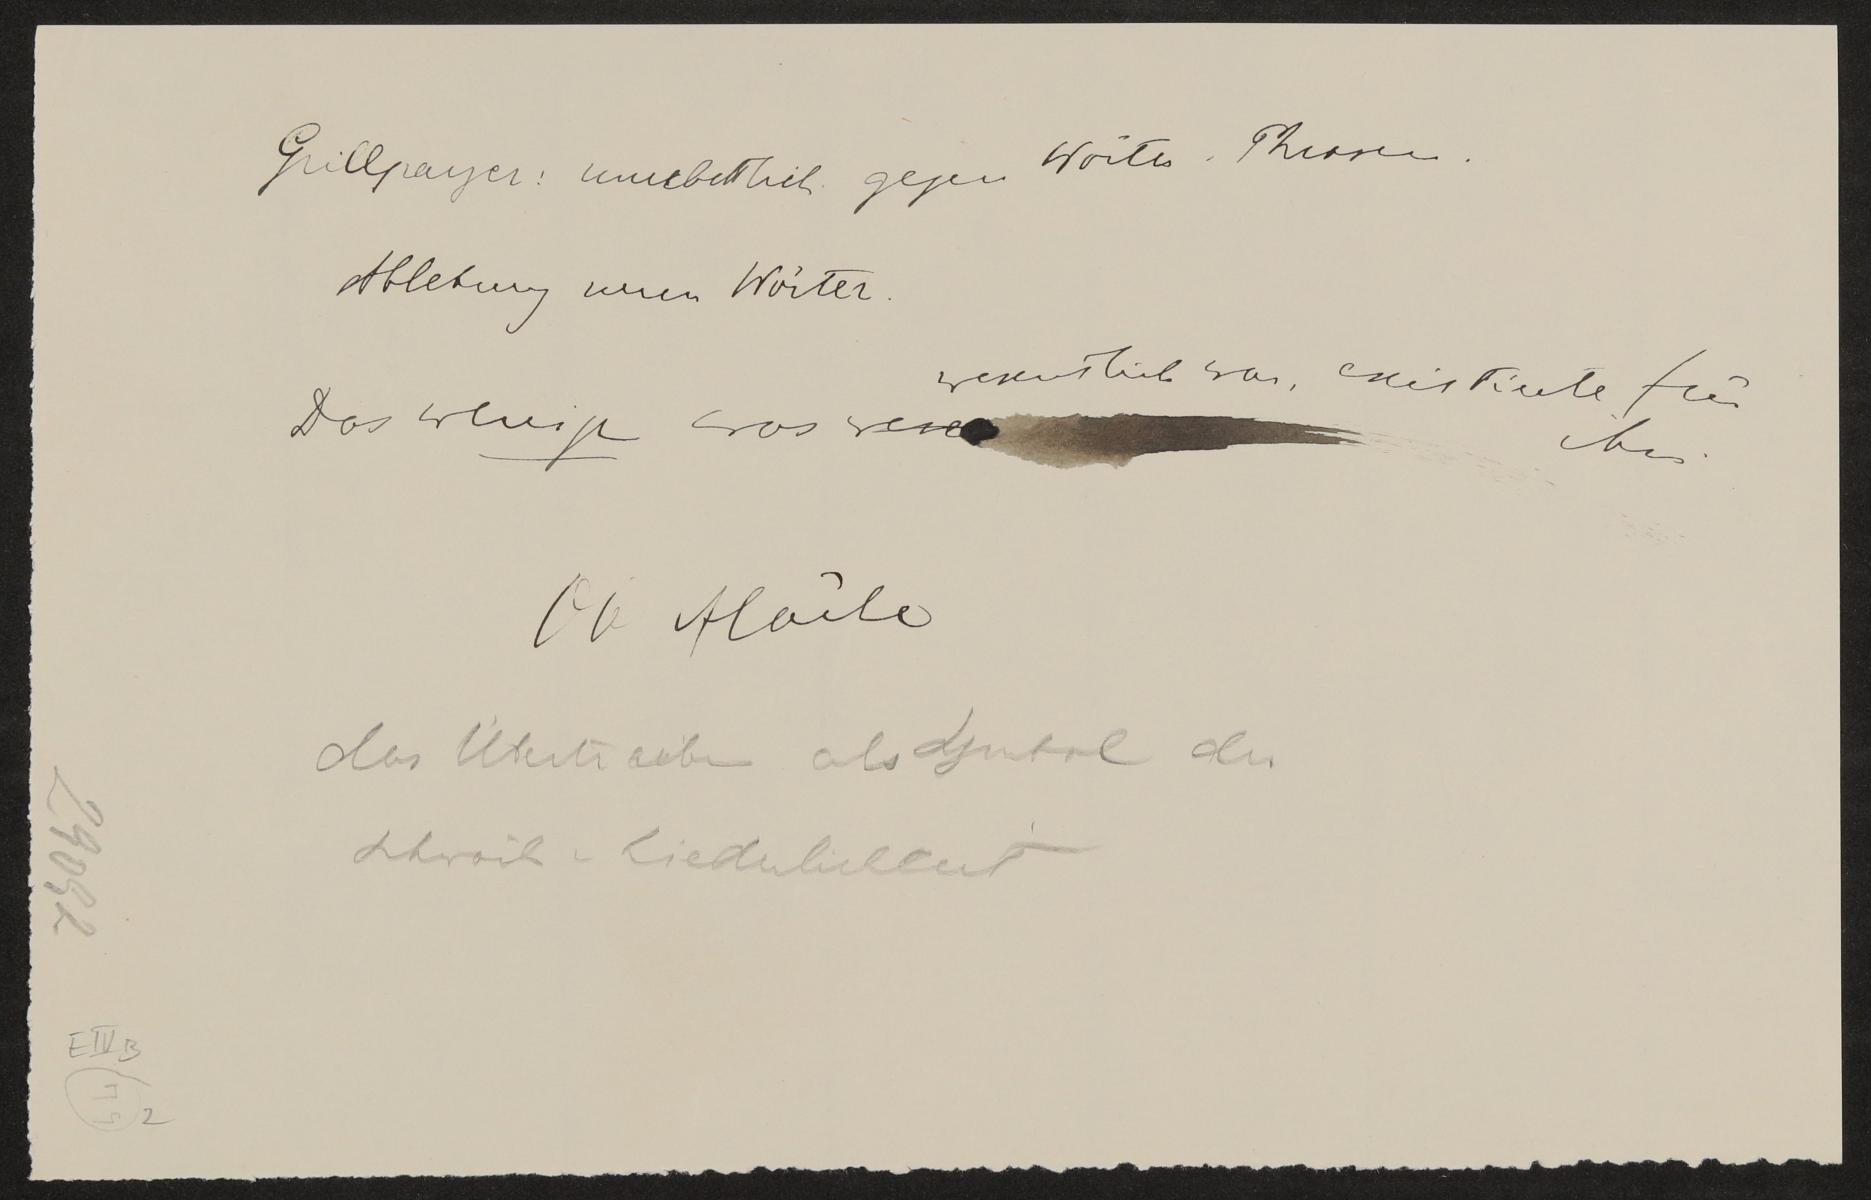 Grillparzer: unerbittlich gegen Wörter. Phrasen.
Ablehnung neuer Wörter.
Das wenige was wesen
wesentlich war, existierte für
ihn.
Ob
das Übertreiben als Symbol der
Liederlichkeit
29092
E IV B
2